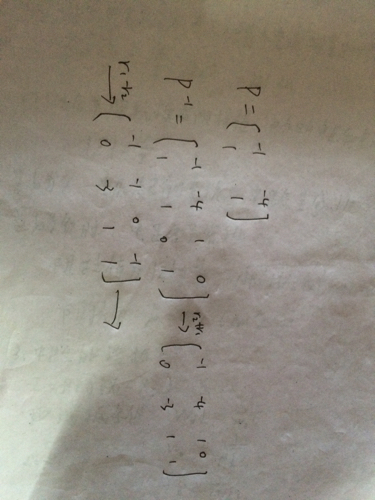 P = [ -1 -4
1 1 ]
P⁻¹ = [ -1 -4 1 0
1 1 0 1 ] r2+r1 → [ -1 -4 1 0
0 -3 1 1 ]
r1-r2 → [ -1 -1 0 -1
0 -3 1 1 ] →